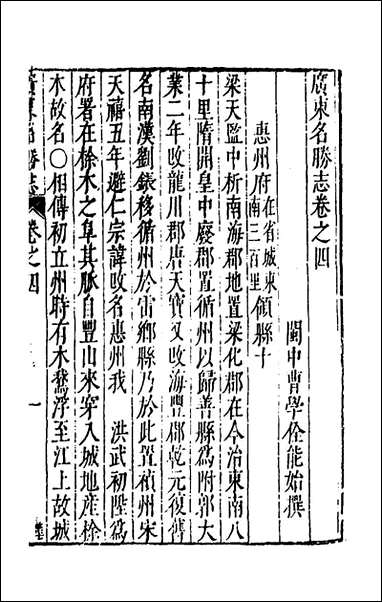 廣東名勝志卷之四
閩中曹學佺能始撰
惠州府在省城東南三百里領縣十
梁天監中析南海郡地置梁化郡在今治東南八
十里隋開皇中廢郡置循州以歸善縣爲附郭大
業二年改龍川郡唐天寶又改海豐郡乾元復舊
名南漢劉鋹移循州於雷鄉縣乃於此置禎州宋
天禧五年避仁宗諱改名惠州我 洪武初陞爲
府署在梌木之阜其脉自豐山來穿入城地產梌
木故名〇相傳初立州時有木鵞浮至江上故城
卷之四
一